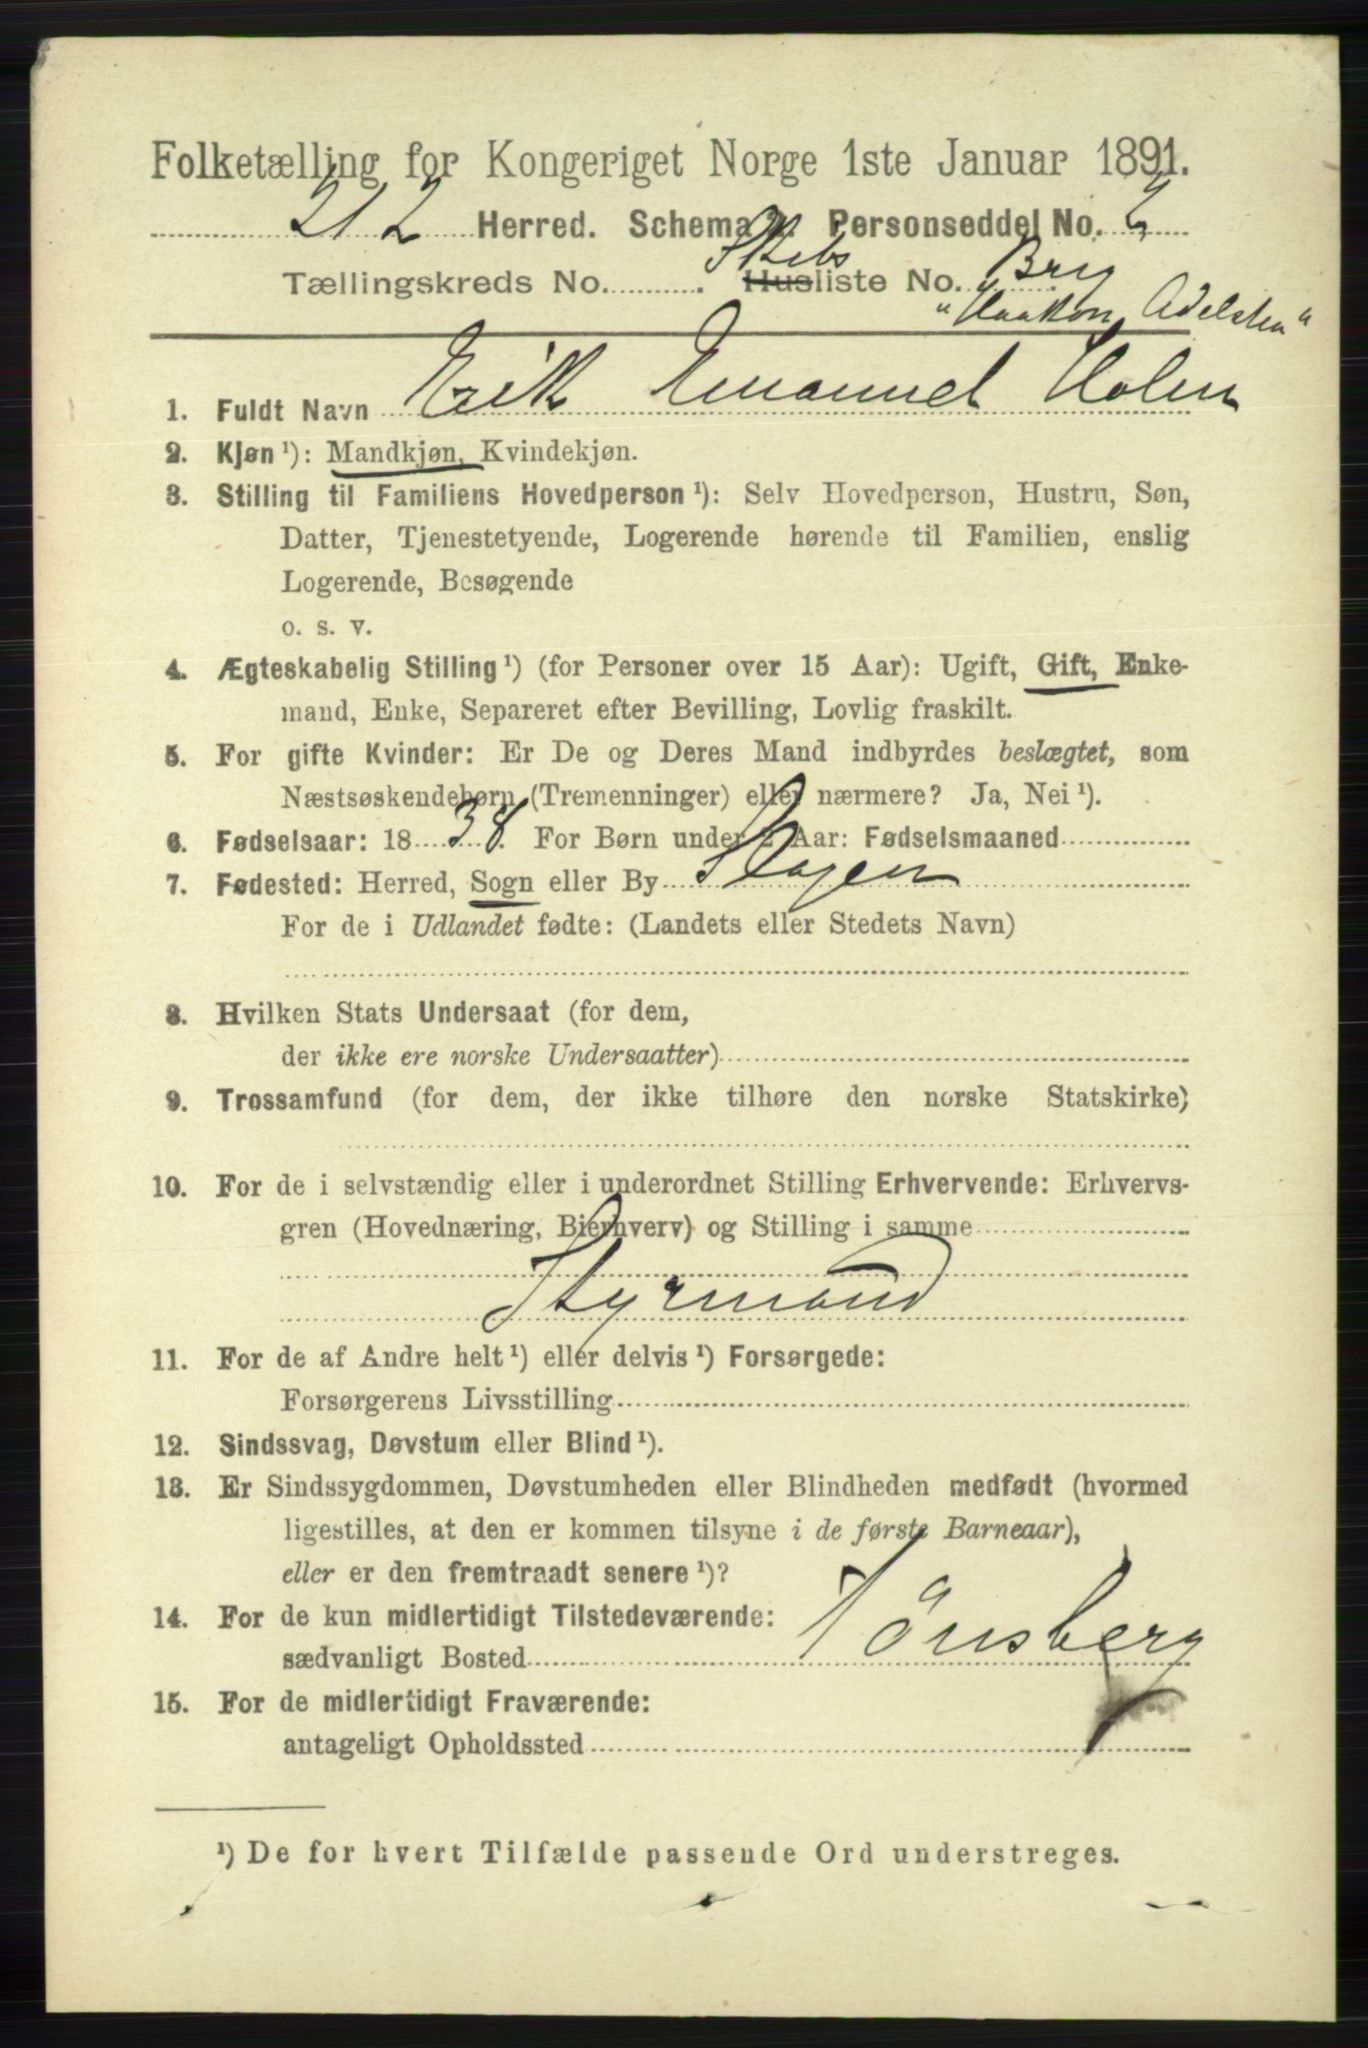 Folketælling for Kongeriget Norge 1ste Januar 1891.
212 Herred. Schema 2. Personseddel No. 2
Tællingskreds No. . Skibs Husliste No. Brig
"Haakon Adelsten"
1. Fuldt Navn Erik Emanuel Holm
2. Kjøn ¹): Mandkjøn, Kvindekjøn.
3. Stilling til Familiens Hovedperson ¹): Selv Hovedperson, Hustru, Søn,
Datter, Tjenestetyende, Logerende hørende til Familien, enslig
Logerende, Besøgende
o. s. v.
4. Ægteskabelig Stilling ¹) (for Personer over 15 Aar): Ugift, Gift, Enke-
mand, Enke, Separeret efter Bevilling, Lovlig fraskilt.
5. For gifte Kvinder: Er De og Deres Mand indbyrdes beslægtet, som
Næstsøskendebørn (Tremenninger) eller nærmere? Ja, Nei ¹).
6. Fødselsaar: 1838. For Børn under 2 Aar: Fødselsmaaned
7. Fødested: Herred, Sogn eller By Slagen
For de i Udlandet fødte: (Landets eller Stedets Navn)
8. Hvilken Stats Undersaat (for dem,
der ikke ere norske Undersaatter)
9. Trossamfund (for dem, der ikke tilhøre den norske Statskirke)
10. For de i selvstændig eller i underordnet Stilling Erhvervende: Erhvervs-
gren (Hovednæring, Bierhverv) og Stilling i samme
Styrmand
11. For de af Andre helt ¹) eller delvis ¹) Forsørgede:
Forsørgerens Livsstilling
12. Sindssvag, Døvstum eller Blind ¹).
13. Er Sindssygdommen, Døvstumheden eller Blindheden medfødt (hvormed
ligestilles, at den er kommen tilsyne i de første Barneaar),
eller er den fremtraadt senere ¹)?
14. For de kun midlertidigt Tilstedeværende:
sædvanligt Bosted Tönsberg
15. For de midlertidigt Fraværende:
antageligt Opholdssted
¹) De for hvert Tilfælde passende Ord understreges.